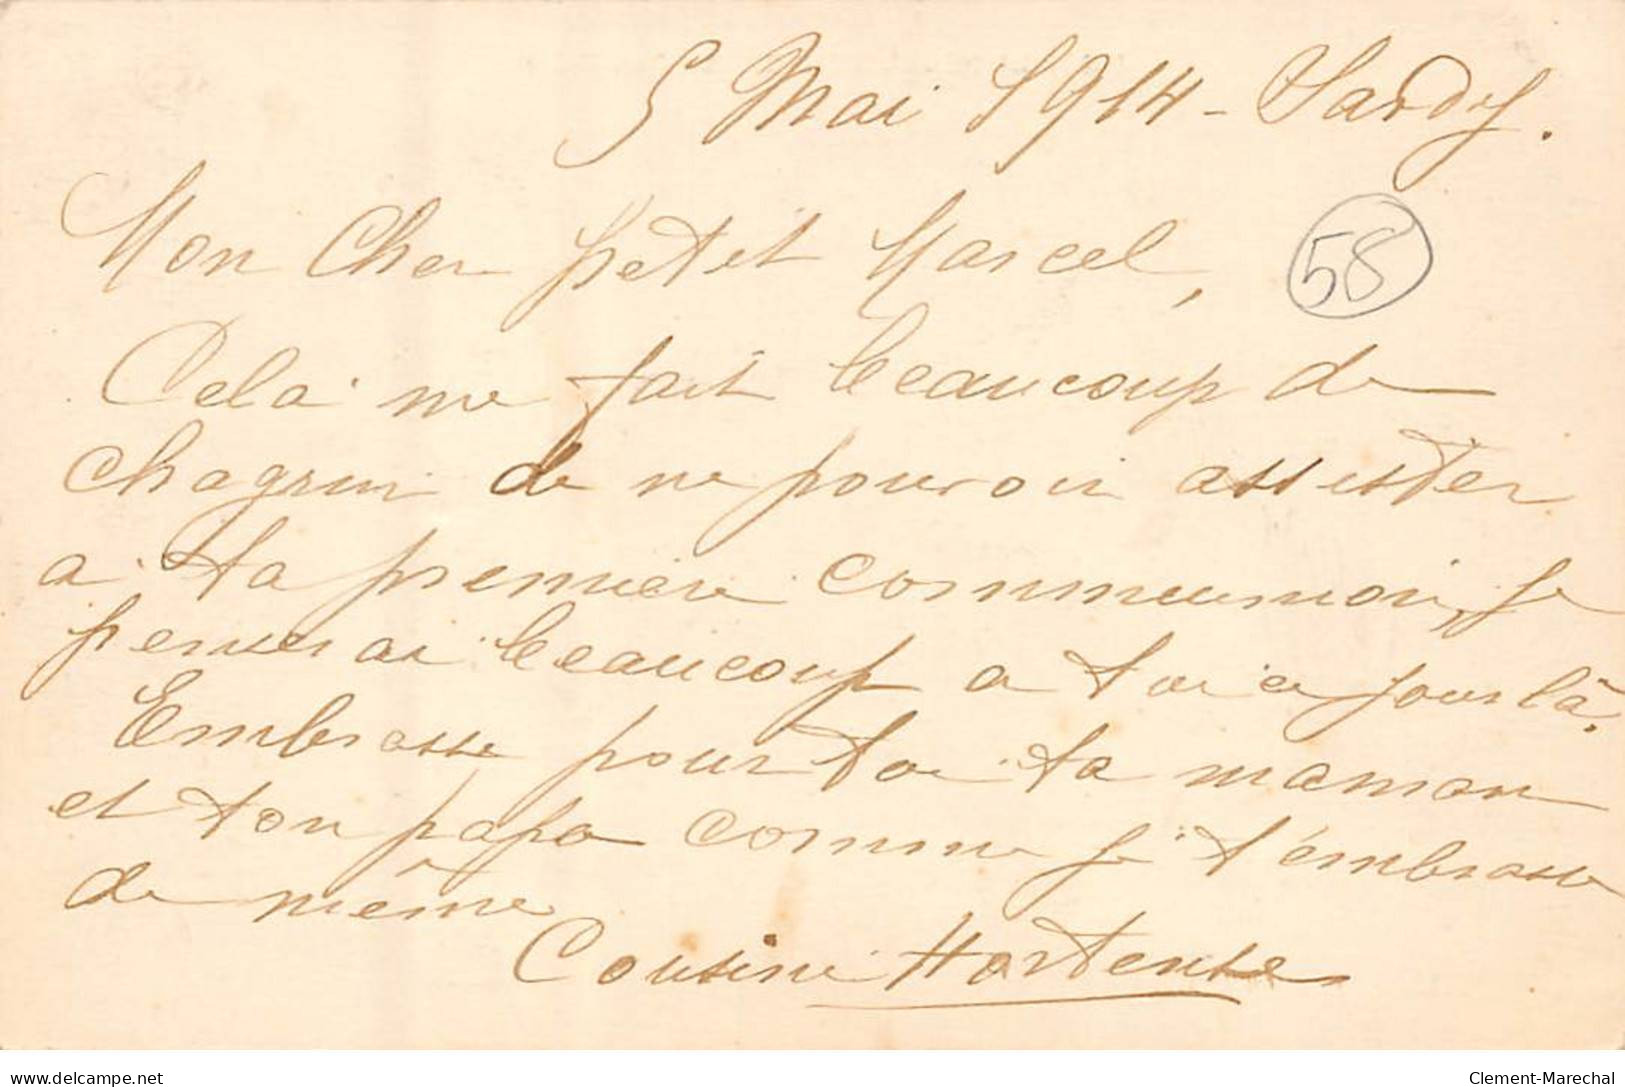 5 Mai 1914 - Sardy.
Mon Cher petit Marcel,
58
Celà me fait beaucoup de
chagrin de ne pouvoir assister
a ta première communion, je
penserai beaucoup a toi ce jour là.
Embrasse pour toi ta maman
et ton papa comme je t'embrasse
de même
Cousine Hortense
www.delcampe.net
Clement-Marechal